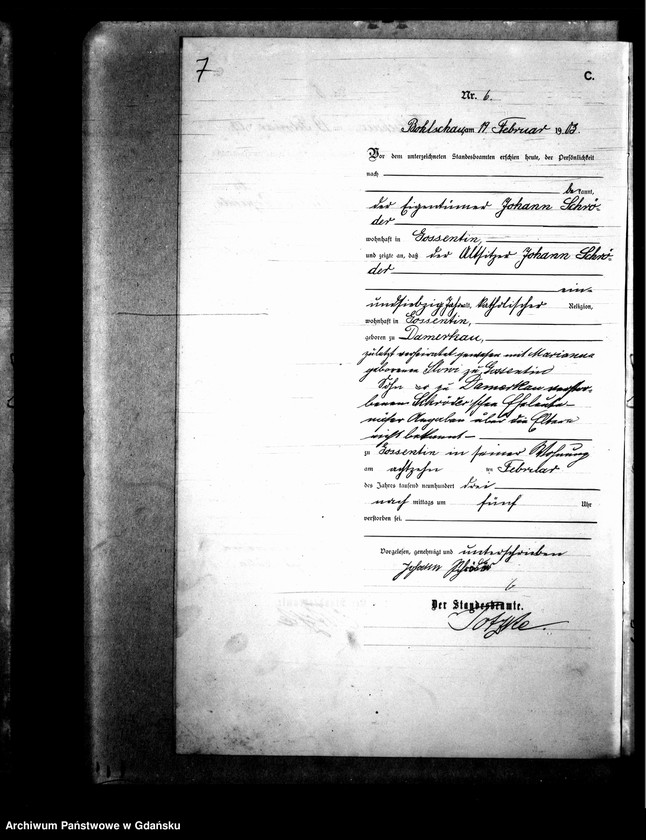 7
C.
Nr. 6.
Bohlschau, am 19 Februar 1903.
Vor dem unterzeichneten Standesbeamten erschien heute, der Persönlichkeit
nach
bekannt,
der Eigentümer Johann Schrö-
der
wohnhaft in Gossentin,
und zeigte an, daß der Altsitzer Johann Schrö-
der
ein-
undsiebzig Jahre alt, katholischer Religion,
wohnhaft in Gossentin,
geboren zu Damerkau,
zuletzt verheiratet gewesen mit Marianna
geborenen zu Gossentin
Sohn der zu Damerkau verstor-
benen Schröder'schen Eheleute
Angaben über die Eltern
nicht bekannt
zu Gossentin in seiner Wohnung
am achtzehn ten Februar
des Jahres tausend neunhundert drei
nach mittags um fünf Uhr
verstorben sei.
Vorgelesen, genehmigt und unterschrieben
Johann Schröder
Der Standesbeamte.
Archiwum Państwowe w Gdańsku